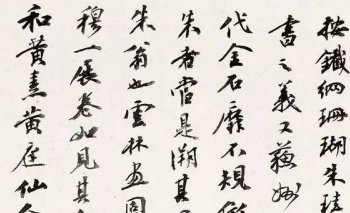 按鐵網珊瑚朱珪
書之義又蘇
代金石靡不規
朱者當是溯其
朱翁也雲林画周
穆一展卷如見其
和黃素黃庭仙